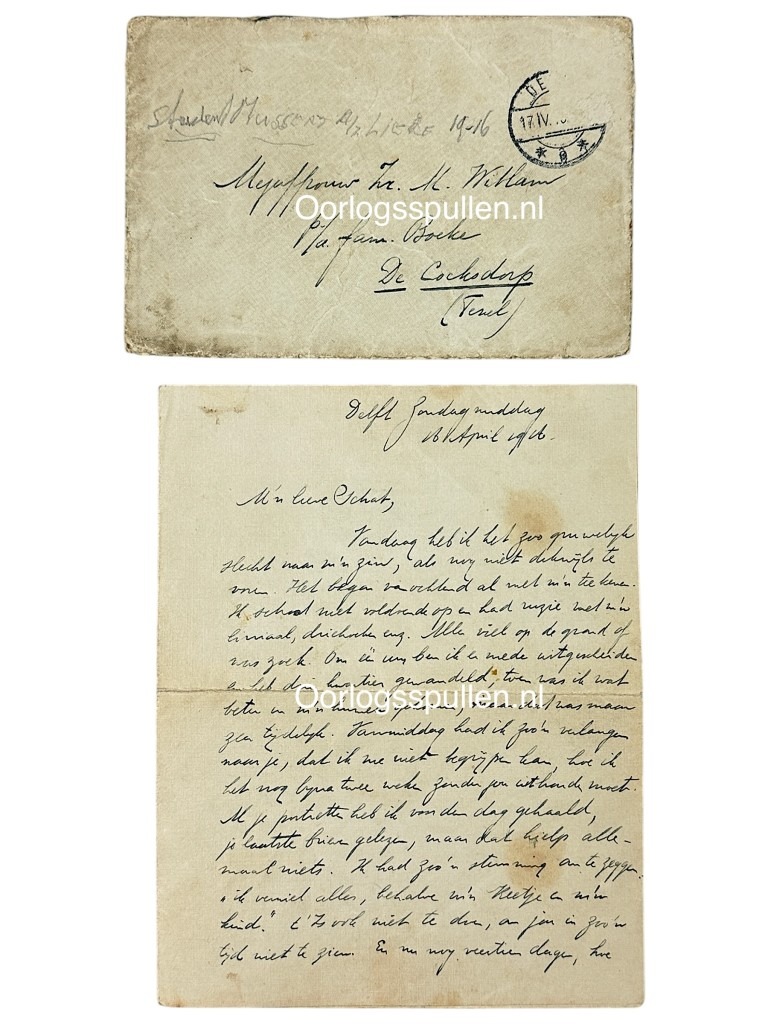 Student Mussert a/z Liefje 1916
DE
17.IV.
* 8 *
Mejuffrouw Zr. M. Witlam
Oorlogsspullen.nl
P/a. fam. Boeke
De Cocksdorp
(Texel)
Delft Zondagmiddag
16 April 1916.
M'n lieve Schat,
Vandaag heb ik het zoo gruwelijk
slecht naar m'n zin, als nog niet dikwijls te
voren. Het began vanochtend al met m'n teekenen.
Ik schoot niet voldoende op en had ruzie met m'n
liniaal, driehoeken enz. Alles viel op de grond of
was zoek. Om één uur ben ik er mede uitgescheiden
en heb drie kwartier gewandeld, toen was ik wat
beter in m'n humeur maar dat was maar
zeer tijdelijk. Vanmiddag had ik zoo'n verlangen
naar je, dat ik me niet begrijpen kan, hoe ik
het nog bijna twee weken zonder jou uithouden moet.
Al je portretten heb ik voor den dag gehaald,
je laatste brieven gelezen, maar dat hielp alle-
maal niets. Ik had zoo'n stemming om te zeggen:
"ik verniel alles, behalve m'n Reetje en m'n
kind." t'Is ook niet te doen, om jou in zoo'n
tijd niet te zien. En nu nog veertien dagen, hoe
Oorlogsspullen.nl